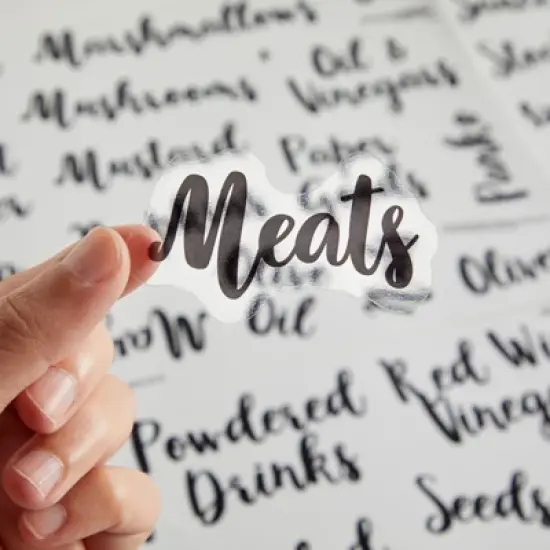 Marshmallows
Mushrooms
Oil &
Vinegars
Mustard
Paper
Meats
Pasta
Oil
Olive
Powdered
Drinks
Red Wi
Vineg
Seeds